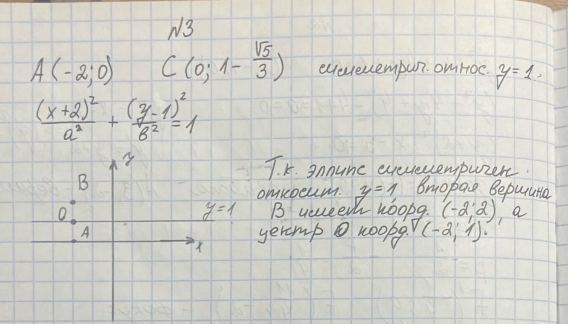 №3
A(-2;0) C(0; 1 - √5/3) симметрич. относ. y=1.
(x+2)²/a² + (y-1)²/в² = 1
y
B
O
A
x
y=1
Т.к. эллипс симметричен
относит. y=1 вторая вершина
B имеет коорд. (-2;2), а
центр O коорд. (-2;1).